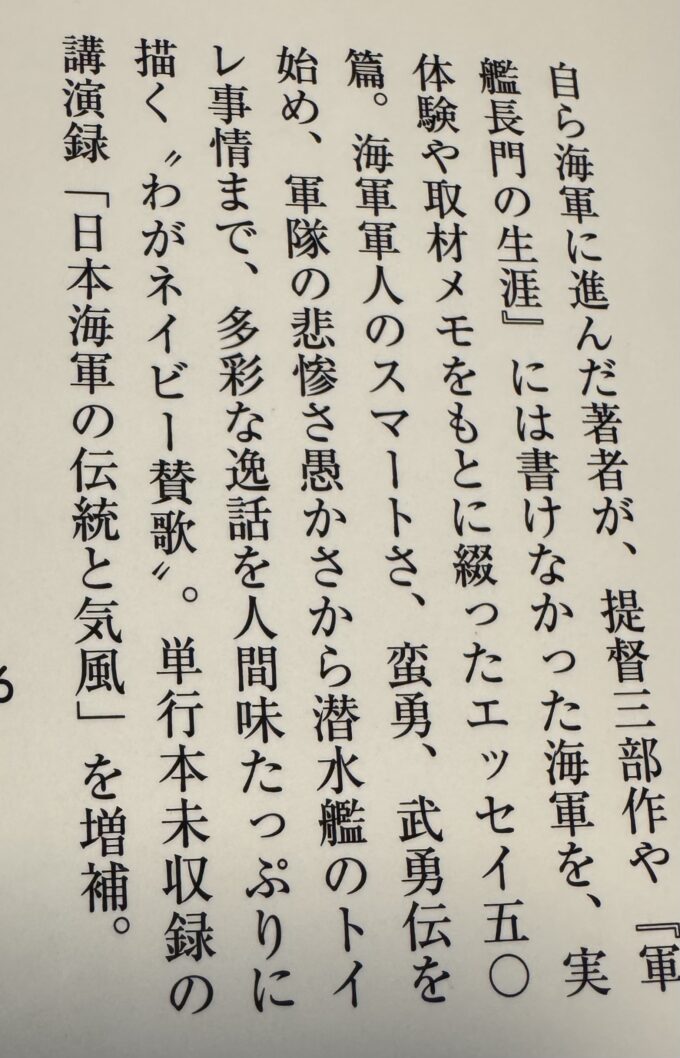 自ら海軍に進んだ著者が、提督三部作や『軍
艦長門の生涯』には書けなかった海軍を、実
体験や取材メモをもとに綴ったエッセイ五〇
篇。海軍軍人のスマートさ、蛮勇、武勇伝を
始め、軍隊の悲惨さ愚かさから潜水艦のトイ
レ事情まで、多彩な逸話を人間味たっぷりに
描く〝わがネイビー賛歌〟。単行本未収録の
講演録「日本海軍の伝統と気風」を増補。